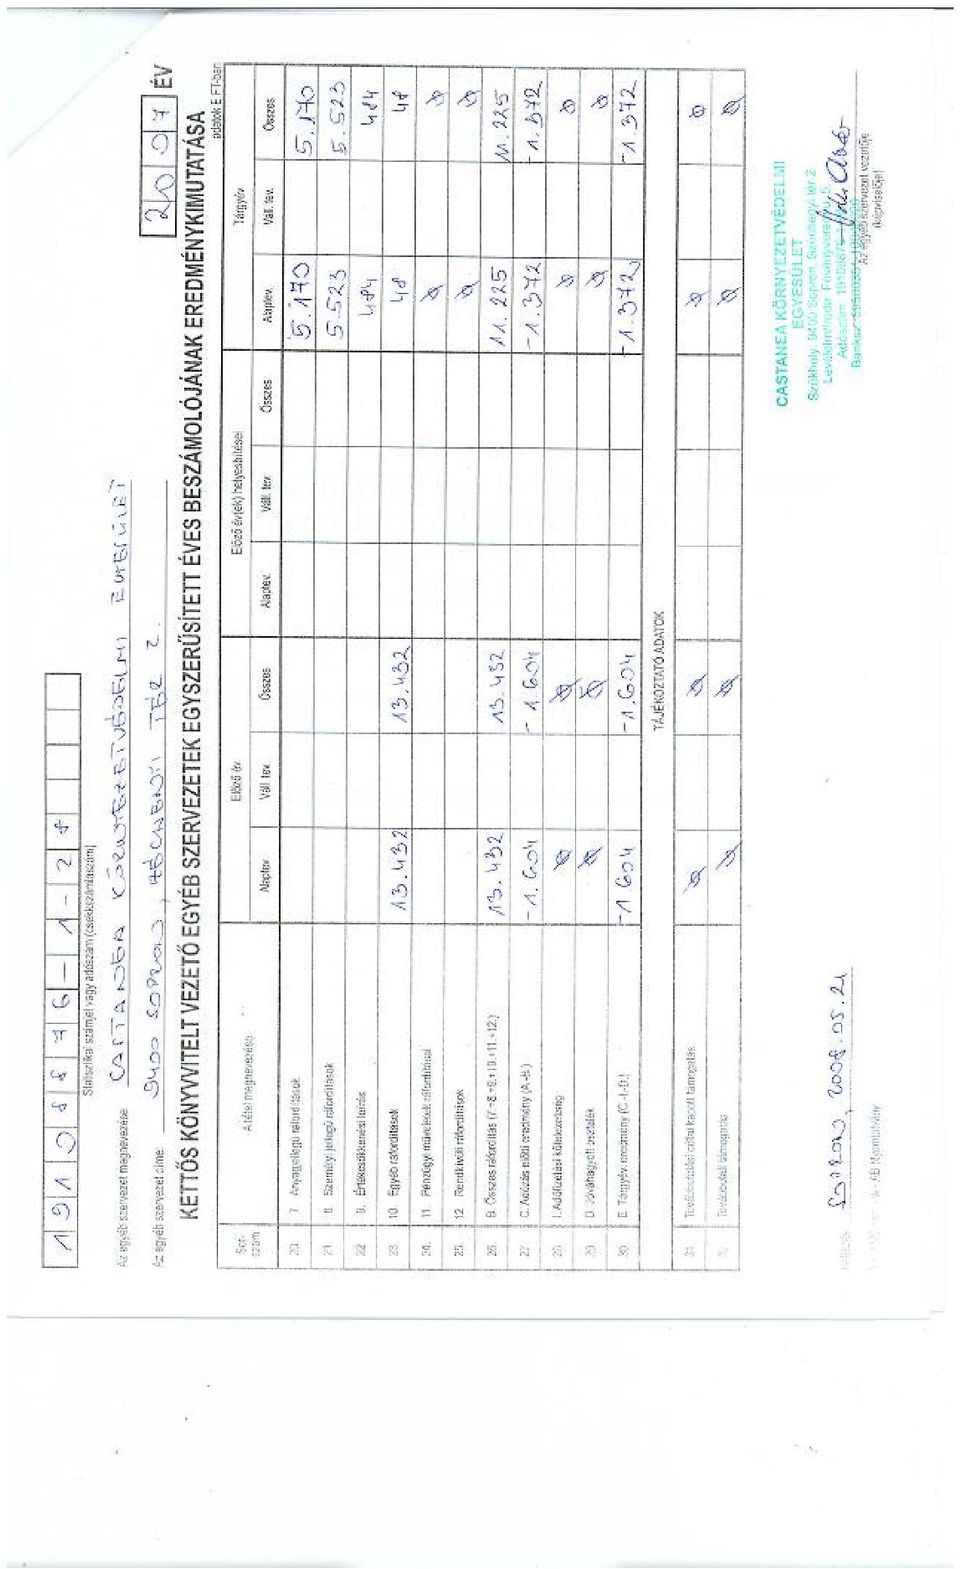 19108876-1-28
Statisztikai számjel vagy adószám (csekkszámlaszám)
Az egyéb szervezet megnevezése: CASTANEA KÖRNYEZETVÉDELMI EGYESÜLET
Az egyéb szervezet címe: 9400 SOPRON, SZÉCHENYI TÉR 2.
2007 ÉV
KETTŐS KÖNYVVITELT VEZETŐ EGYÉB SZERVEZETEK EGYSZERŰSÍTETT ÉVES BESZÁMOLÓJÁNAK EREDMÉNYKIMUTATÁSA
adatok E FT-ban
Sor-szám A tétel megnevezése Előző év Előző év(ek) helyesbítései Tárgyév
Alaptev. Váll. tev. Összes Alaptev. Váll. tev. Összes Alaptev. Váll. tev. Összes
20. 7. Anyagjellegű ráfordítások 5.170 5.170
21. 8. Személyi jellegű ráfordítások 5.523 5.523
22. 9. Értékcsökkenési leírás 484 484
23. 10. Egyéb ráfordítások 13.432 13.432 48 48
24. 11. Pénzügyi műveletek ráfordításai Ø Ø
25. 12. Rendkívüli ráfordítások Ø Ø
26. B. Összes ráfordítás (7.+8.+9.+10.+11.+12.) 13.432 13.432 11.225 11.225
27. C. Adózás előtti eredmény (A.-B.) -1.604 -1.604 -1.372 -1.372
28. I. Adófizetési kötelezettség Ø Ø Ø Ø
29. D. Jóváhagyott osztalék Ø Ø Ø Ø
30. E. Tárgyévi eredmény (C.-I.-D.) -1.604 -1.604 -1.372 -1.372
TÁJÉKOZTATÓ ADATOK
31. Továbbutalási céllal kapott támogatás Ø Ø Ø Ø
Továbbutalt támogatás Ø Ø Ø Ø
CASTANEA KÖRNYEZETVÉDELMI
EGYESÜLET
Székhely: 9400 Sopron, Széchenyi tér 2
SOPRON, 2008.05.21
Az egyéb szervezet vezetője
(képviselője)
AB Nyomtatvány